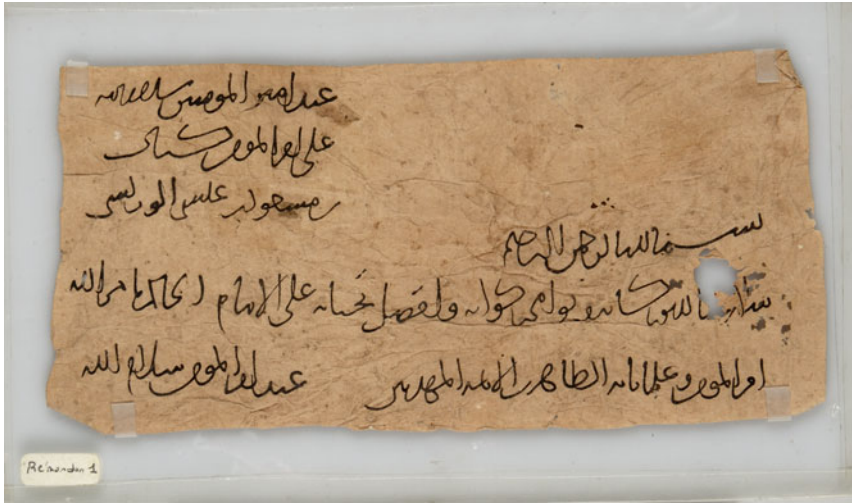 عبد امير المومنين سلام الله
على امير المومنين
بن مسعود بن عيسى
بسم الله الرحمن الرحيم
الله وبركاته ونوامى زكواته وافضل تحياته على الامام الحاكم بامر الله
امير المومنين وعلى ابائه الطاهرين الائمه المهديين عبد امير المومنين سلام الله
Rémondon 1